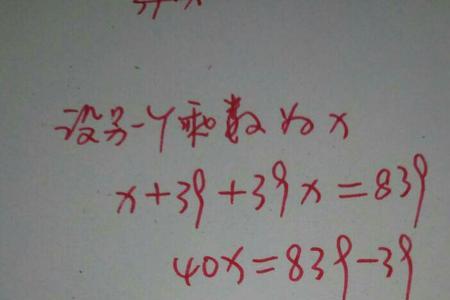 设另一个乘数为x
x+39+39x=839
40x=839-39